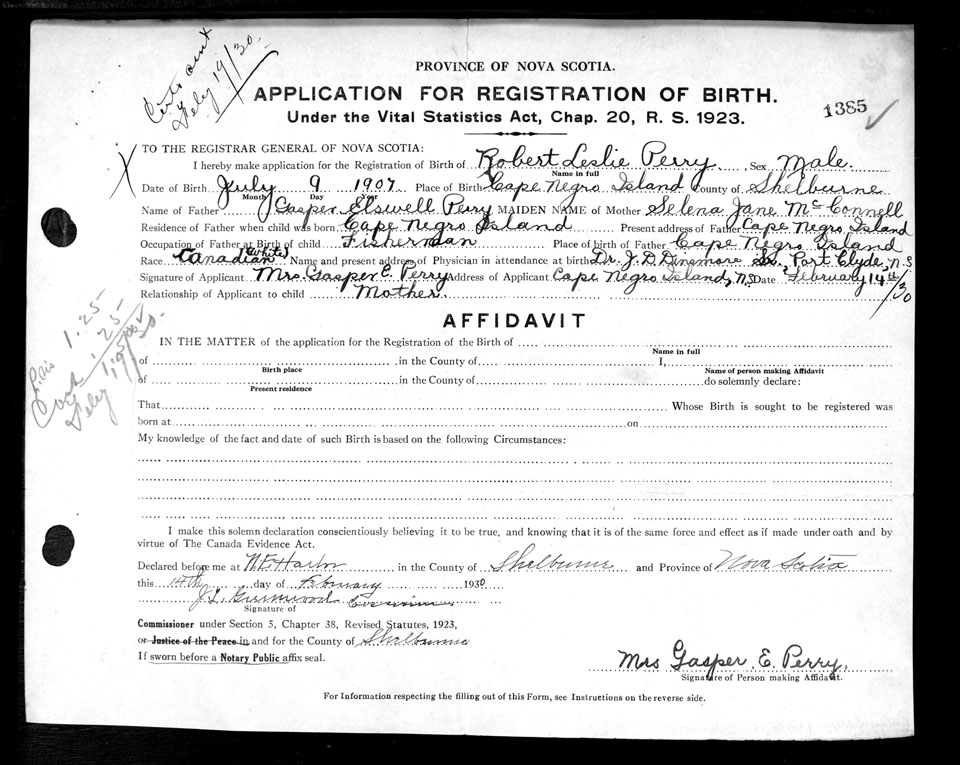 Feby 19/30.
PROVINCE OF NOVA SCOTIA.
APPLICATION FOR REGISTRATION OF BIRTH.
Under the Vital Statistics Act, Chap. 20, R. S. 1923.
1385
TO THE REGISTRAR GENERAL OF NOVA SCOTIA:
I hereby make application for the Registration of Birth of Robert Leslie Perry. Sex Male.
Name in full
Date of Birth July 9 1907 Place of Birth Cape Negro Island County of Shelburne
Month Day Year
Name of Father Gasper Elswell Perry MAIDEN NAME of Mother Selena Jane McConnell
Residence of Father when child was born Cape Negro Island Present address of Father Cape Negro Island
Occupation of Father at Birth of child Fisherman Place of birth of Father Cape Negro Island
Race Canadian (White) Name and present address of Physician in attendance at birth Dr. J. D. Densmore Sr. Port Clyde, N.S
Signature of Applicant Mrs. Gasper E. Perry Address of Applicant Cape Negro Island, N.S Date February 14th/30
Relationship of Applicant to child Mother.
1.25
.25
AFFIDAVIT
IN THE MATTER of the application for the Registration of the Birth of
Name in full
of in the County of I,
Birth place Name of person making Affidavit
of in the County of do solemnly declare:
Present residence
That Whose Birth is sought to be registered was
born at on
My knowledge of the fact and date of such Birth is based on the following Circumstances:
I make this solemn declaration conscientiously believing it to be true, and knowing that it is of the same force and effect as if made under oath and by
virtue of The Canada Evidence Act.
Declared before me at N.E Harbor in the County of Shelburne and Province of Nova Scotia
this 14th day of February 1930
Signature of
Commissioner under Section 5, Chapter 38, Revised Statutes, 1923,
or Justice of the Peace in and for the County of Shelburne
If sworn before a Notary Public affix seal.
Mrs Gasper E. Perry.
Signature of Person making Affidavit.
For Information respecting the filling out of this Form, see Instructions on the reverse side.